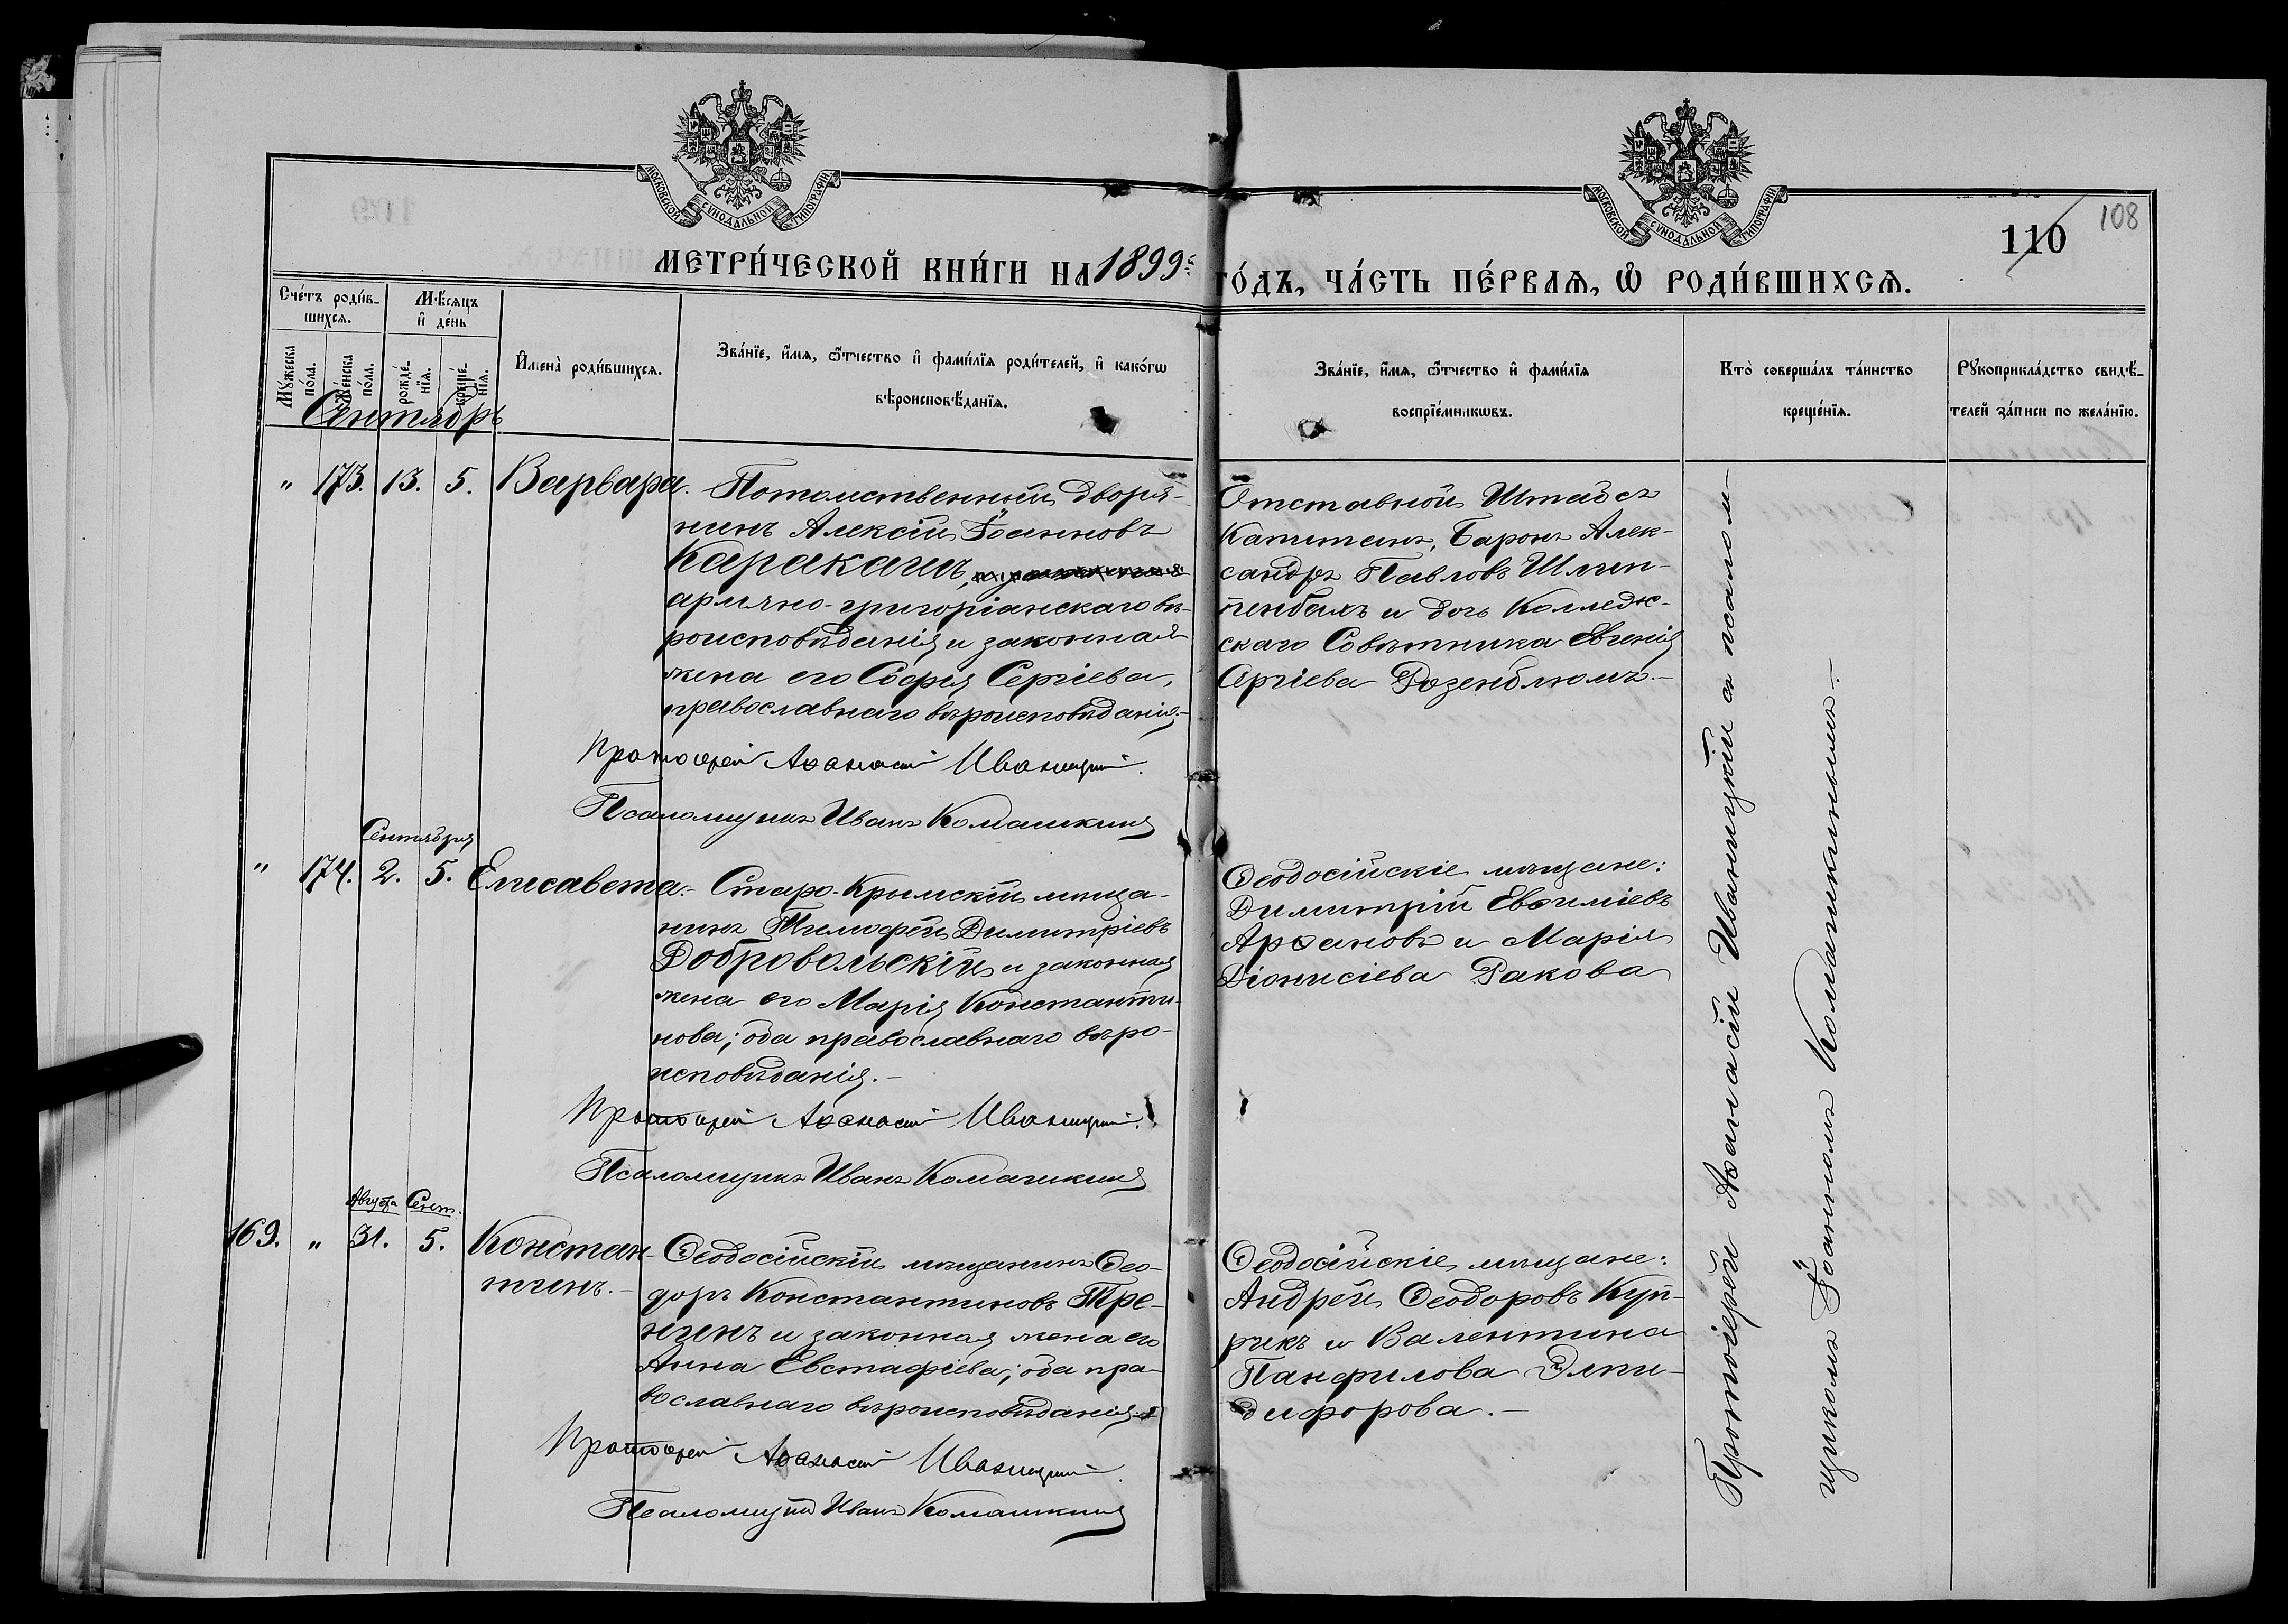 МОСКОВСКОЙ СѴНОДАЛЬНОЙ ТИПОГРАФІИ
МОСКОВСКОЙ СѴНОДАЛЬНОЙ ТИПОГРАФІИ
108
110
МЕТРИ́ЧЕСКОЙ КНИ́ГИ НА 1899й ГО́ДЪ, ЧА́СТЬ ПЕ́РВАЯ, Ѡ҆ РОДИ́ВШИХСЯ.
Сче́тъ роди́в-
шихся.
Мѣ́сяцъ
и҆ де́нь
Мꙋ́жеска
по́ла.
Же́нска
по́ла.
рожде́-
нїя.
креще́-
нїя.
И҆мена̀ роди́вшихся.
Зва́нїе, и҆́мя, ѻ҆́тчество и҆ фами́лїя роди́телей, и҆ како́гѡ
вѣроисповѣ́данїя.
Зва́нїе, и҆́мя, ѻ҆́тчество и҆ фами́лїя
воспрїе́мникѡвъ.
Кто̀ соверша́лъ та́инство
креще́нїя.
Рꙋкоприкла́дство свидѣ́-
телей за́писи по жела́нїю.
Сентябрь
" 173. 13. 5. Варвара. Потомственный дворя-
нинъ Алексій Іоанновъ
Каракашъ,
армяно-григоріанскаго вѣ-
роисповѣданія и законная
жена его Софія Сергіева,
православнаго вѣроисповѣданія.-
Протоіерей Аѳанасій Иваницкій.
Псаломщикъ Иванъ Комашкинъ
Отставной Штабсъ
Капитанъ, Баронъ Алек-
сандръ Павловъ Шлип-
пенбахъ и дочь Колледж-
скаго Совѣтника Евгенія
Сергіева Розенблюмъ.-
Сентября
" 174. 2. 5. Елисавета.- Старо-Крымскій мѣща-
нинъ Тимофей Димитріевъ
Добровольскій и законная
жена его Марія Константи-
нова; оба православнаго вѣро-
исповѣданія.-
Протоіерей Аѳанасій Иваницкій.
Псаломщикъ Иванъ Комашкинъ
Ѳеодосійскіе мѣщане:
Димитрій Евѳиміевъ
Арѳановъ и Марія
Діонисіева Ракова
Августа Сент.
169. " 31. 5. Констан-
тинъ.-
Ѳеодосійскій мѣщанинъ Ѳео-
доръ Константиновъ Тре-
нинъ и законная жена его
Анна Евстафіева; оба пра-
вославнаго вѣроисповѣданія.-
Протоіерей Аѳанасій Иваницкій.
Псаломщикъ Иванъ Комашкинъ
Ѳеодосійскіе мѣщане:
Андрей Ѳеодоровъ Куп-
рикъ и Валентина
Панфилова Элпи-
дифорова.-
Протоіерей Аѳанасій Иваницкій съ псалом-
щикомъ Іоанномъ Комашкинымъ.-